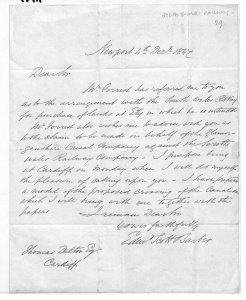 SOUTH WALES RAILWAY
Newport 4th Decr. 1847
Dear Sir
Mr. Forred has referred me to you
as to the arrangement with the South Wales
for purchase of lands at Ely in which he is interested
Mr. Forred also wishes me to advise with you as
to the claim to be made on behalf of the Glamor-
ganshire Canal Company against the South
Wales Railway Company. I purpose being
at Cardiff on Monday when I will do myself
the pleasure of calling upon you - I have prepared
a model of the proposed crossing of the Canal
which I will bring with me together with the
papers
I remain Dear Sir
Yours faithfully
Edwd.
Thomas Dalton Esq
Cardiff